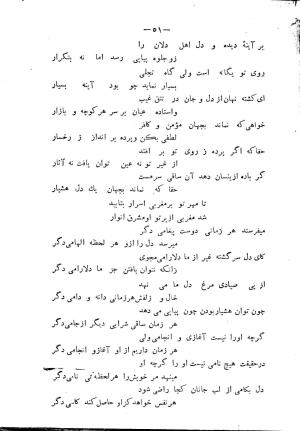 — ۵۱ —
بر آینهٔ دیده و دل اهل دلان را
زو جلوه پیاپی رسد اما نه بتکرار
روی تو یگانه است ولی گاه تجلی
بسیار نماید چو بود آینه بسیار
ای کشته نهان از دل و جان در تتق غیب
واستاده عیان بر سر هر کوچه و بازار
خواهی که نماند بجهان مؤمن و کافر
لطفی بکن و پرده بر انداز ز رخسار
حقا که اگر پرده ز روی تو بر افتد
از غیر تو نه عین توان یافت نه آثار
گر باده ازینسان دهد آن ساقی سرمست
حقا که نماند بجهان یك دل هشیار
تا مهر تو بر مغربی اسرار بتابید
شد مغربی از پرتو او مشرق انوار
میفرستد هر زمانی دوست پیغامی دگر
میرسد دل را ازو هر لحظه الهامی دگر
کای دل سرگشته غیر از ما دلارامی مجوی
زانکه نتوان یافتن جز ما دلارامی دگر
از پی صیادی مرغ دل ما می نهد
خال و زلفش هر زمانی دانه و دامی دگر
چون توان هشیار بودن چون پیاپی می دهد
هر زمان ساقی شرابی دیگر از جامی دگر
گرچه اورا نیست آغازی و انجامی ولی
هر زمان داریم از او آغازو انجامی دگر
درحقیقت هیچ نامی نیست او را گرچه او
مینهد مر خویش را هر لحظه‌ئی نامی دگر
دل بکامی از لب جانان کجا راضی شود
هر نفس خواهد کزاو حاصل کند کامی دگر